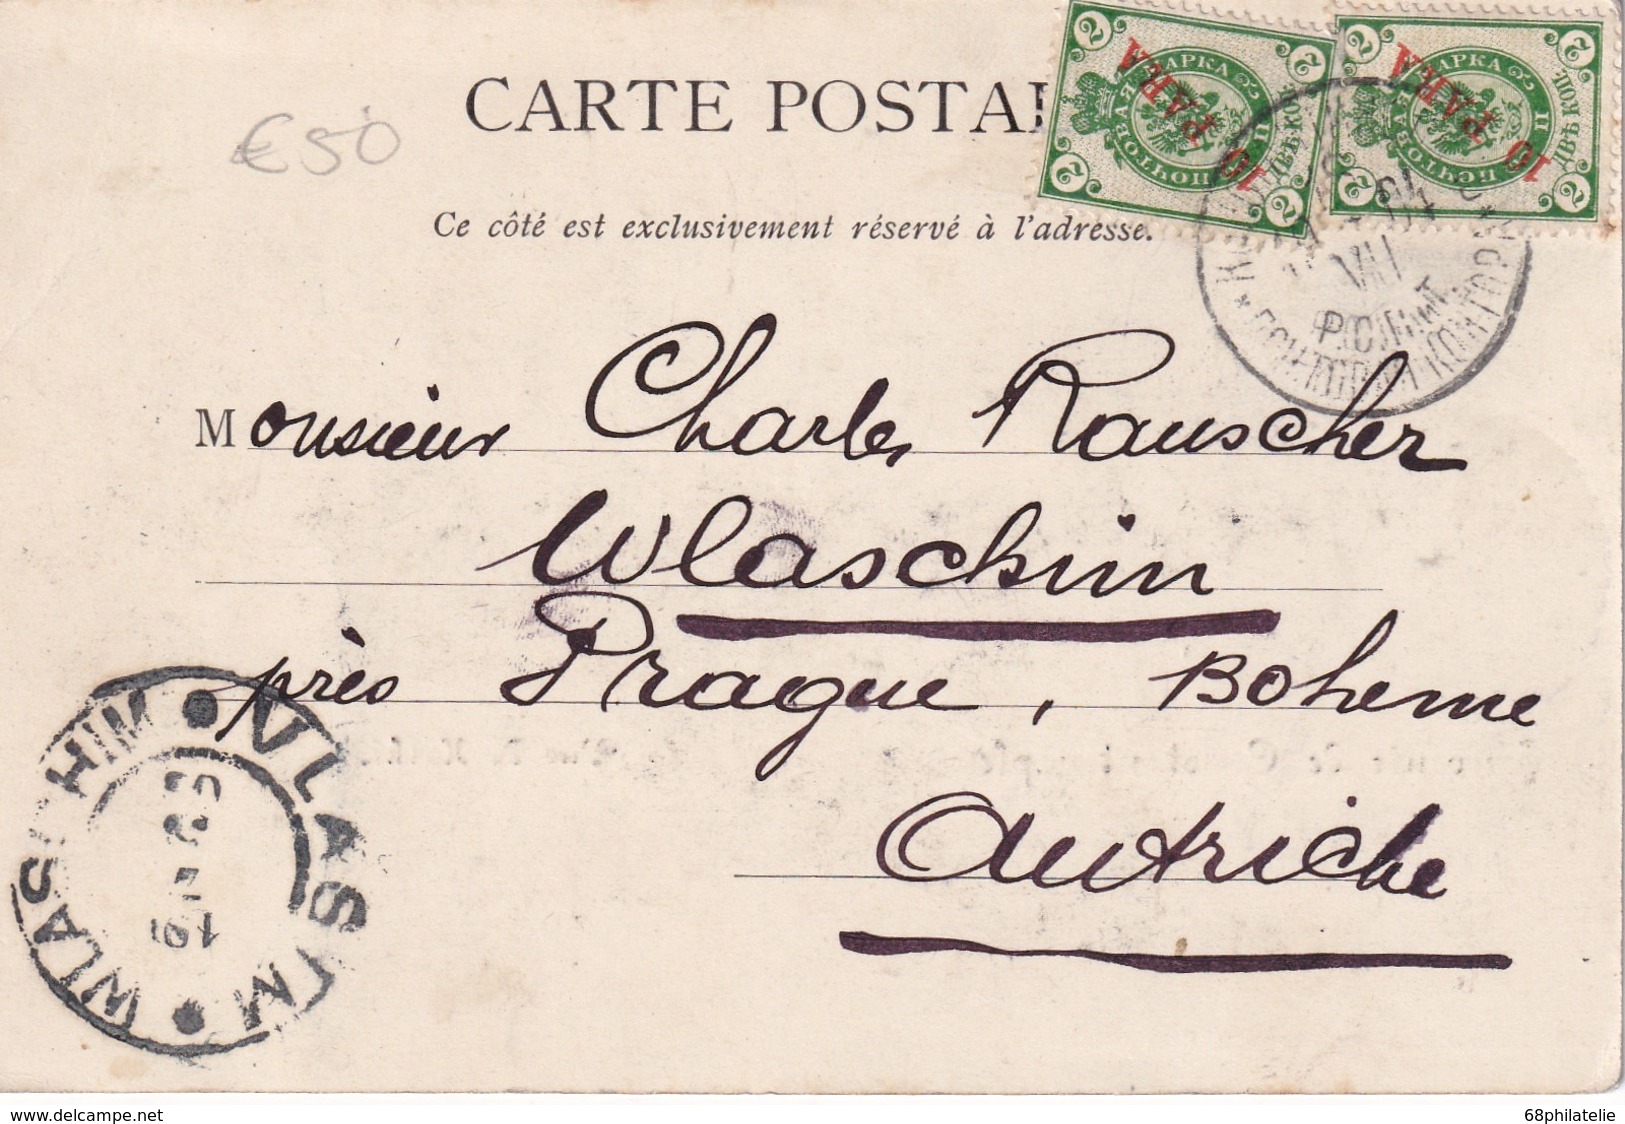 CARTE POSTA
€50
Ce côté est exclusivement réservé à l'adresse.
10 PARA
10 PARA
2 2 2 2
2 2 2
МАРКА
ДВѢ КОП.
VII
Monsieur Charles Rauscher
Wlaschim
près Prague, Boheme
Autriche
WLASCHIM • VLASIM •
www.delcampe.net
68philatelie